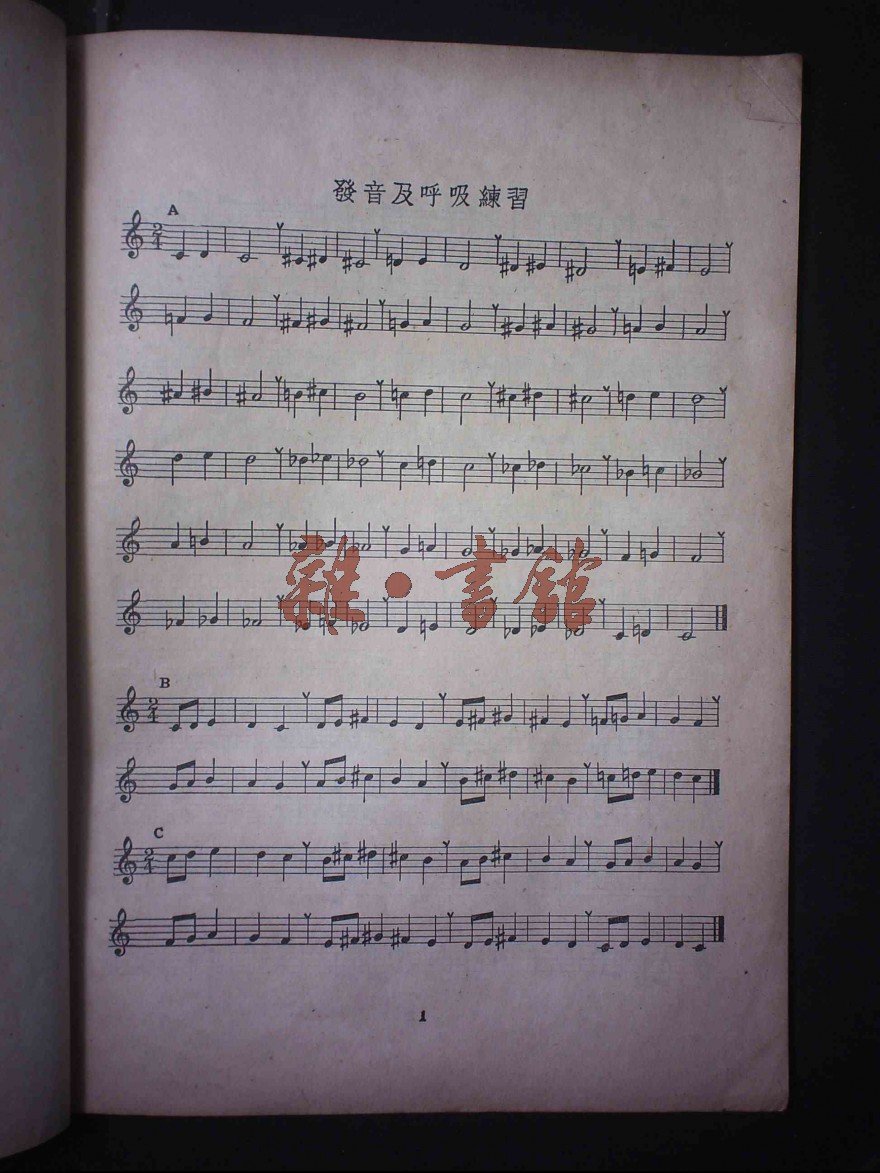 發音及呼吸練習
A
2
4
雜·書館
B
2
4
C
2
4
1